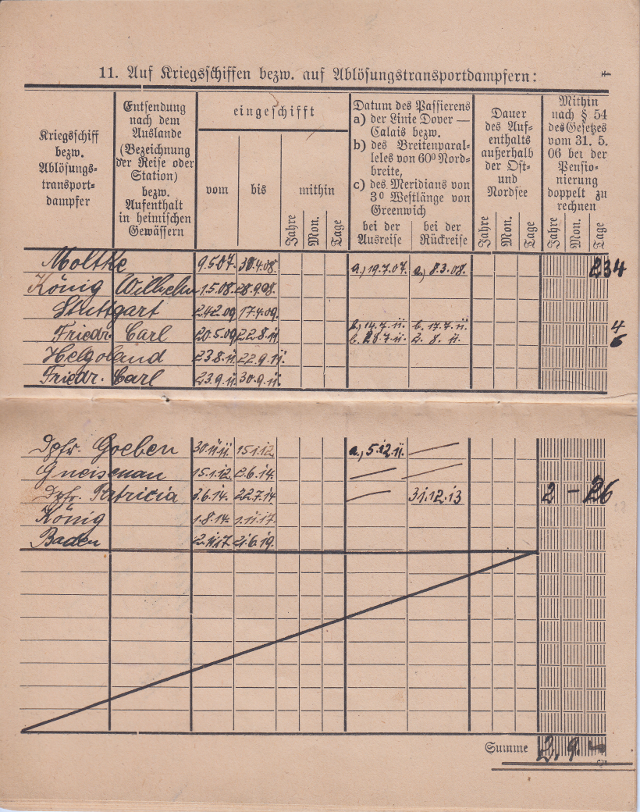 11. Auf Kriegsschiffen bezw. auf Ablösungstransportdampfern:
Kriegsschiff bezw. Ablösungs-transport-dampfer
Entsendung nach dem Auslande (Bezeichnung der Reise oder Station) bezw. Aufenthalt in heimischen Gewässern
eingeschifft
vom bis mithin
Jahre Mon. Tage
Datum des Passierens
a) der Linie Dover — Calais bezw.
b) des Breitenparal-leles von 60° Nord-breite,
c) des Meridians von 3° Westlänge von Greenwich
bei der Ausreise bei der Rückreise
Dauer des Auf-enthalts außerhalb der Ost- und Nordsee
Jahre Mon. Tage
Mithin nach § 54 des Gesetzes vom 31. 5. 06 bei der Pensio-nierung doppelt zu rechnen
Jahre Mon. Tage
Moltke 9.5.07. 30.4.08. a, 19.7.07. a, 8.3.08. 234
König Wilhelm 1.5.08 28.9.08.
Stuttgart 17.4.09.
Friedr. Carl 20.5.09 22.8.11. b, 14.7.11. b. 17.7.11. 4
2. 8. 11. 6
Helgoland 23.8.11. 22.9.11.
Friedr. Carl 23.9.11. 30.9.11.
Dpfr. Goeben 30.11.11. 15.1.12 a, 5.12.11.
Gneisenau 15.1.12. 2.6.14.
Dpfr. Patricia 3.6.14. 22.7.14 31.12.13 2 - 26
König 1.8.14. 1.11.17.
Baden 2.11.17. 21.6.19.
Summe 2. 9. -